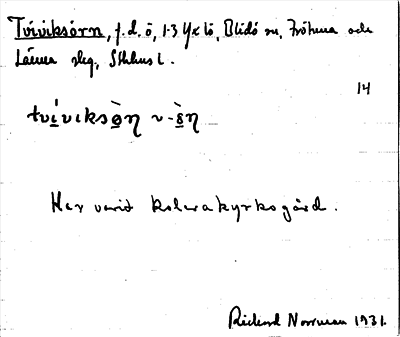 Tviviksörn, f.d. ö, 1.3 Yxlö, Blidö sn, Frötuna och
Länna slg, Sthlms l.
14
Har varit kolerakyrkogård.
Richard Norrman 1931.